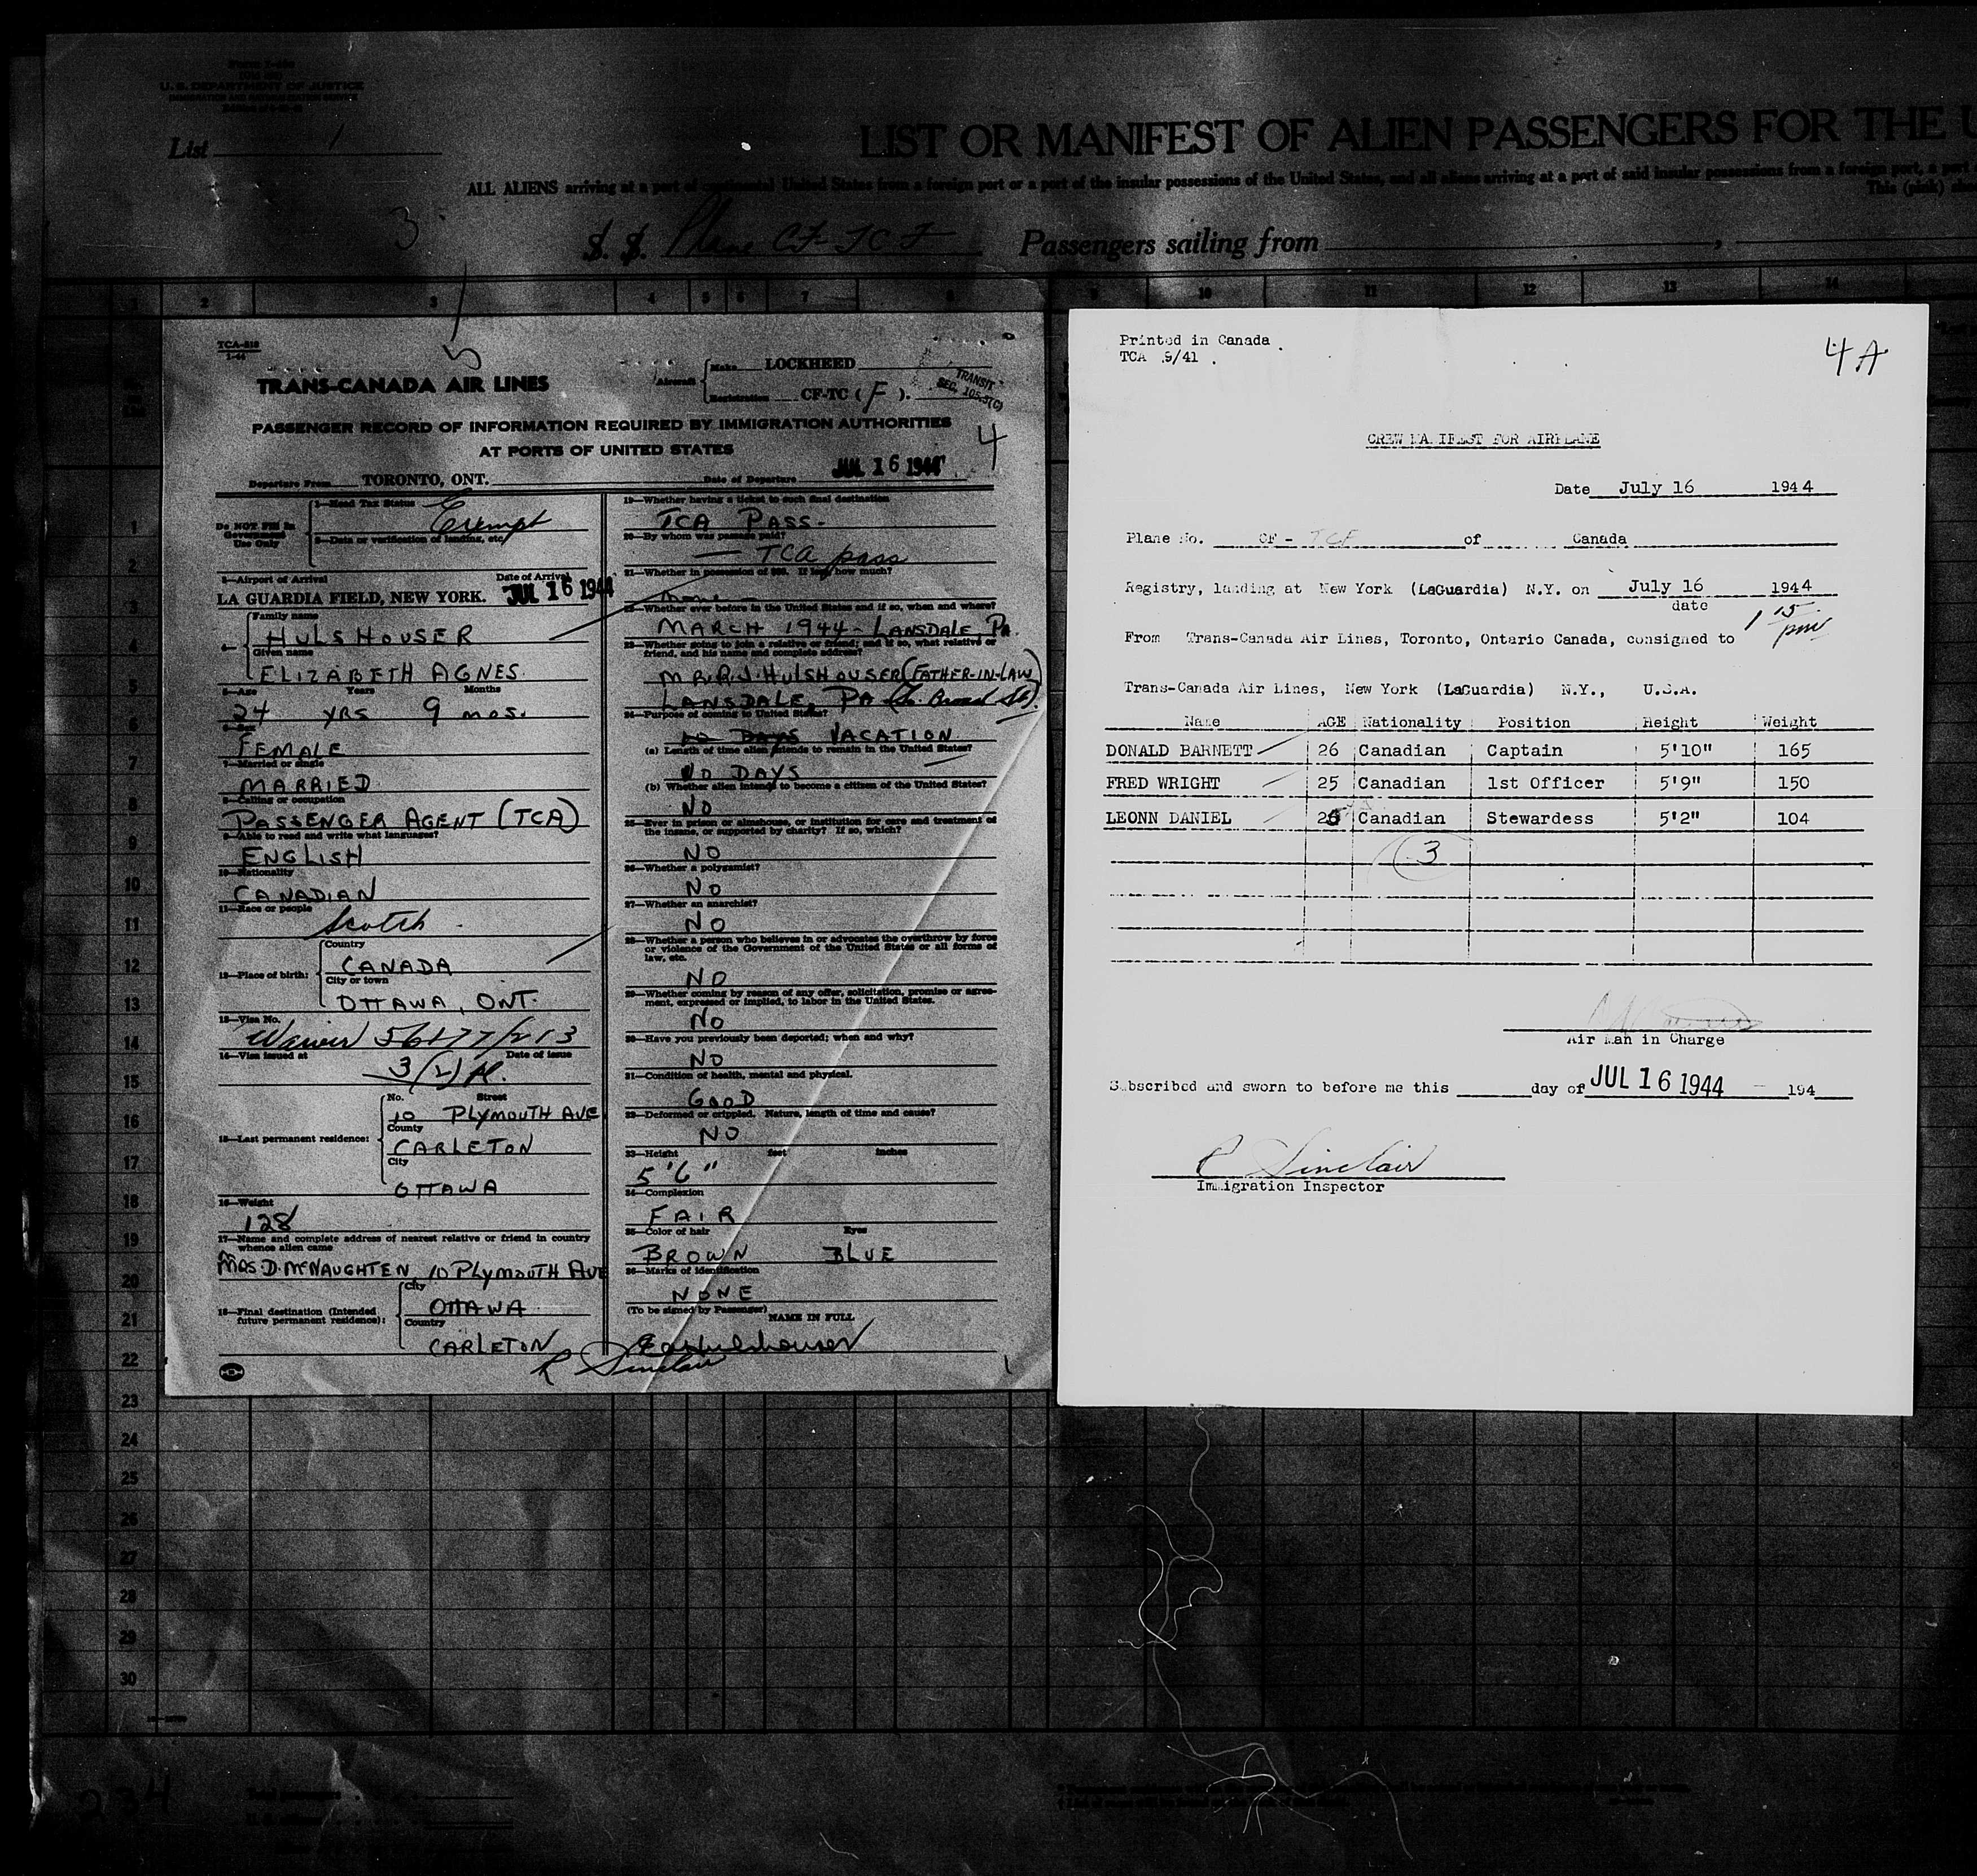 U. S. DEPARTMENT OF JUSTICE
List 1
LIST OR MANIFEST OF ALIEN PASSENGERS FOR THE U
ALL ALIENS arriving at a port of continental United States from a foreign port or a port of the insular possessions of the United States, and all aliens arriving at a port of said insular possessions from a foreign port, a port
This (pink) she
3
S. S. Plane CF-TCF Passengers sailing from
1 2 3 4 5 6 7 8 9 10 11 12 13 14
5
TCA-818
1-44
TRANS-CANADA AIR LINES
Aircraft
Make LOCKHEED
Registration CF-TC ( F ).
TRANSIT
SEC. 105.3(C)
PASSENGER RECORD OF INFORMATION REQUIRED BY IMMIGRATION AUTHORITIES
AT PORTS OF UNITED STATES
4
Departure From TORONTO, ONT. Date of Departure JUL 16 1944
Do NOT Fill in
Government
Use Only
1—Head Tax Status Exempt
2—Data or verification of landing, etc.
3—Airport of Arrival Date of Arrival
LA GUARDIA FIELD, NEW YORK. JUL 16 1944
4—
Family name
HULSHOUSER
Given name
ELIZABETH AGNES.
5—Age Years Months
24 YRS 9 mos.
FEMALE
7—Married or single
MARRIED
8—Calling or occupation
PASSENGER AGENT (TCA)
9—Able to read and write what languages?
ENGLISH
10—Nationality
CANADIAN
11—Race or people
Scotch
12—Place of birth:
Country
CANADA
City or town
OTTAWA, ONT.
13—Visa No.
Waiver
14—Visa issued at Date of issue
15—Last permanent residence:
No. Street
10 PLYMOUTH AVE
County
CARLETON
City
OTTAWA
16—Weight
128
17—Name and complete address of nearest relative or friend in country
whence alien came
MRS D. McNAUGHTEN 10 PLYMOUTH AVE
18—Final destination (Intended
future permanent residence):
City
OTTAWA
Country
CARLETON
19—Whether having a ticket to such final destination
TCA PASS.
20—By whom was passage paid?
— TCA pass
21—Whether in possession of $50. If less, how much?
none
22—Whether ever before in the United States and if so, when and where?
MARCH 1944 - LANSDALE Pa.
23—Whether going to join a relative or friend; and if so, what relative or
friend, and his name and complete address?
MR. R. J. HULSHOUSER (FATHER-IN-LAW)
LANSDALE, PA
24—Purpose of coming to United States?
VACATION
(a) Length of time alien intends to remain in the United States?
10 DAYS
(b) Whether alien intends to become a citizen of the United States?
NO
25—Ever in prison or almshouse, or institution for care and treatment of
the insane, or supported by charity? If so, which?
NO
26—Whether a polygamist?
NO
27—Whether an anarchist?
NO
28—Whether a person who believes in or advocates the overthrow by force
or violence of the Government of the United States or all forms of
law, etc.
NO
29—Whether coming by reason of any offer, solicitation, promise or agree-
ment, expressed or implied, to labor in the United States.
NO
30—Have you previously been deported; when and why?
NO
31—Condition of health, mental and physical.
GOOD
32—Deformed or crippled. Nature, length of time and cause?
NO
33—Height feet inches
5'6"
34—Complexion
FAIR
35—Color of hair Eyes
BROWN BLUE
36—Marks of identification
NONE
(To be signed by Passenger) NAME IN FULL
EaHulshouser
R Sinclair
Printed in Canada
TCA 9/41
4A
CREW MANIFEST FOR AIRPLANE
Date July 16 1944
Plane No. CF - TCF of Canada
Registry, landing at New York (LaGuardia) N.Y. on July 16 1944
date
1 15 pm
From Trans-Canada Air Lines, Toronto, Ontario Canada, consigned to
Trans-Canada Air Lines, New York (LaGuardia) N.Y., U.S.A.
Name AGE Nationality Position Height Weight
DONALD BARNETT 26 Canadian Captain 5'10" 165
FRED WRIGHT 25 Canadian 1st Officer 5'9" 150
LEONN DANIEL 25 Canadian Stewardess 5'2" 104
3
Air Man in Charge
Subscribed and sworn to before me this day of JUL 16 1944 194
R Sinclair
Immigration Inspector
1
2
3
4
5
6
7
8
9
10
11
12
13
14
15
16
17
18
19
20
21
22
23
24
25
26
27
28
29
30
234